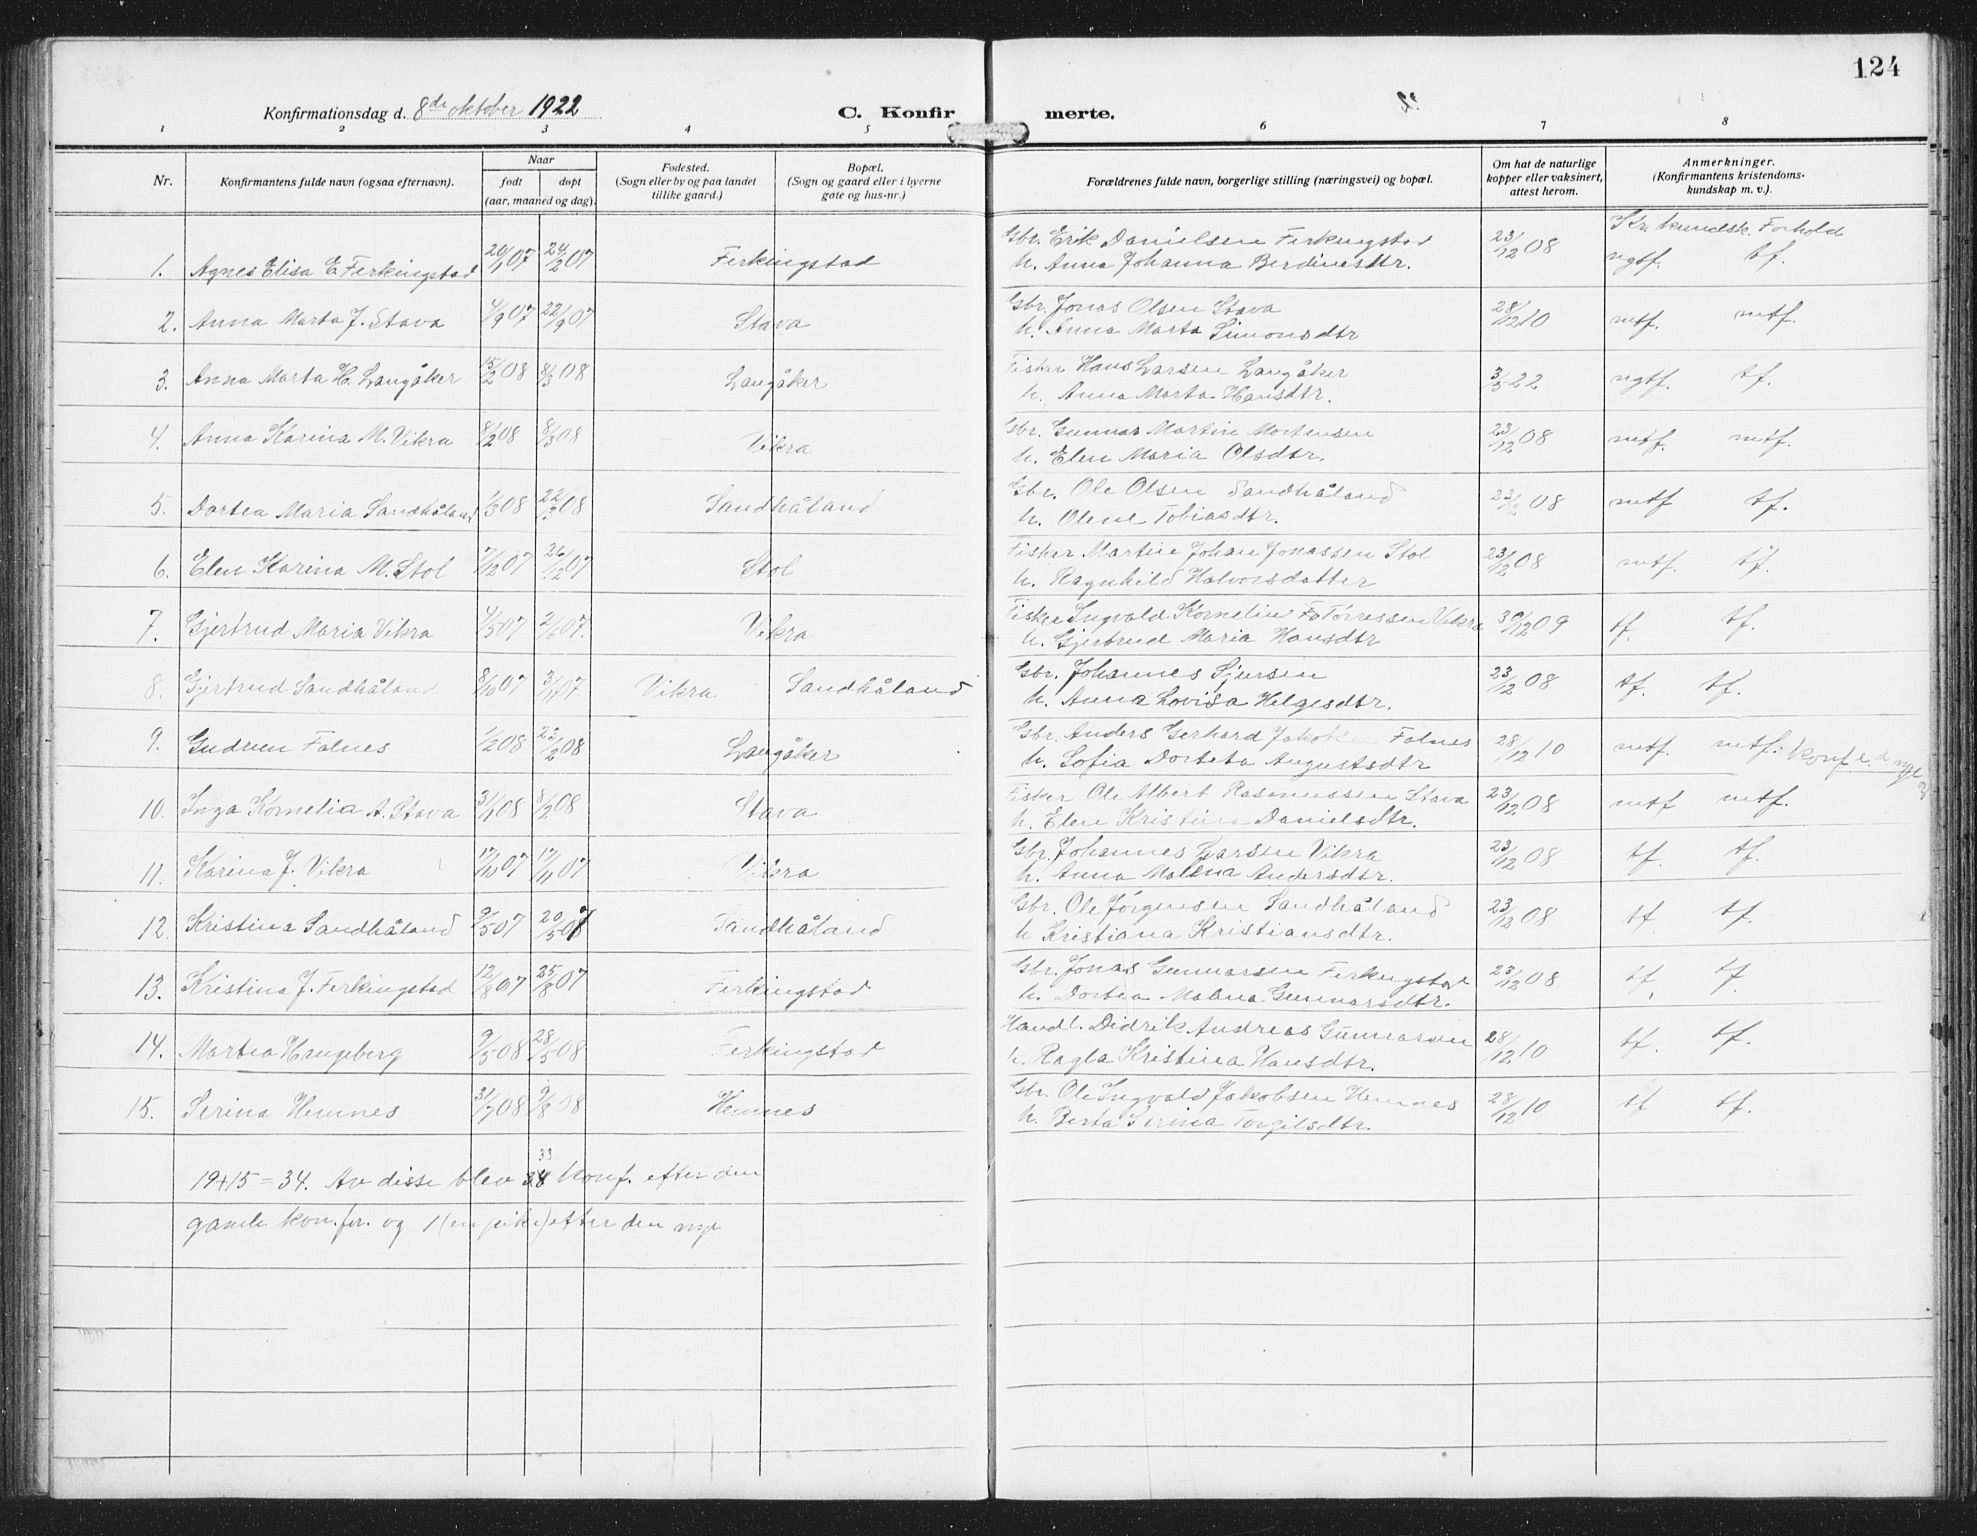 124
Konfirmationsdag d. 8de oktober 1922
C. Konfirmerte.
1 2 3 4 5 6 7 8
Nr. Konfirmantens fulde navn (ogsaa efternavn). Naar født døpt (aar, maaned og dag). Fødested. (Sogn eller by og paa landet tillike gaard.) Bopæl. (Sogn og gaard eller i byerne gate og hus-nr.) Forældrenes fulde navn, borgerlige stilling (næringsvei) og bopæl. Om hat de naturlige kopper eller vaksinert, attest herom. Anmerkninger. (Konfirmantens kristendomskundskap m. v.).
Kr. kundsk. Forhold
1. Agnes Elisa E. Ferkingstad 20/1 07 24/2 07 Ferkingstad Gbr. Erik Danielsen Ferkingstad 23/12 08 ngtf. tf.
h. Anna Johanna Berdinesdtr.
2. Anna Marta J. Stava 4/9 07 22/9 07 Stava Gbr. Jonas Olsen Stava 28/12 10 mtf. mtf.
h. Anna Marta Simonsdtr
3. Anna Marta H. Langåker 15/2 08 8/3 08 Langåker Fisker Hans Larsen Langåker 3/5 22 ngtf. tf.
h. Anna Marta Hansdtr.
4. Anna Karina M. Vikra 8/2 08 8/3 08 Vikra Gbr. Gunnar Martin Mortensen 23/12 08 mtf. mtf.
h. Elen Maria Olsdtr.
5. Dortea Maria Sandhåland 1/3 08 22/3 08 Sandhåland Gbr. Ole Olsen Sandhåland 23/12 08 mtf tf.
h. Olene Tobiasdtr.
6. Elen Karina M. Stol 7/12 07 26/12 07 Stol Fisker Martin Johan Jonassen Stol 23/12 08 mtf. tf.
h. Ragnhild Halvorsdatter
7. Gjertrud Maria Vikra 4/5 07 2/6 07. Vikra Fisker Ingvald Kornelius Tørressen Vikra 30/12 09 tf. tf.
h. Gjertrud Maria Hansdtr
8. Gjertrud Sandhåland 8/10 07 3/11 07 Vikra Sandhåland Gbr. Johannes Sjursen 23/12 08 tf. tf.
h. Anna Lovisa Helgesdtr.
9. Gudrun Falnes 1/2 08 23/2 08 Langåker Gbr. Anders Gerhard Jakobsen Falnes 28/12 10 mtf. mtf. konf e. d nye
h. Sofia Dorteta Augustsdtr
10. Inga Kornelia A. Stava 31/1 08 8/2 08 Stava Fisker Ole Albert Rasmussen Stava 23/12 08 mtf mtf.
h. Elen Kristina Danielsdtr.
11. Karina J. Vikra 17/10 07 17/11 07 Vikra Gbr. Johannes Larsen Vikra 23/12 08 tf. tf.
h. Anna Malena Andersdtr.
12. Kristina Sandhåland 9/5 07 20/5 07 Sandhåland Gbr. Ole Jørgensen Sandhåland 23/12 08 tf. tf.
h Kristiana Kristiansdtr.
13. Kristina J. Ferkingstad 12/8 07 25/8 07 Ferkingstad Gbr. Jonas Gunnarsen Ferkingstad 23/12 08 tf. tf.
h. Dortea Malena Gunnarsdtr.
14. Martea Haugeberg 9/5 08 28/5 08 Ferkingstad Handl. Didrik Andreas Gunnarsen 28/12 10 tf. tf.
h. Ragla Kristina Hansdtr.
15. Serina Hemnes 31/7 08 9/8 08 Hemnes Gbr. Ole Ingvald Jakobsen Hemnes 28/12 10 tf tf.
h. Berta Serina Torgilsdtr.
33
19+15=34. Av disse blev konf. efter den
gamle kon.for. og 1 (en pike) efter den nye